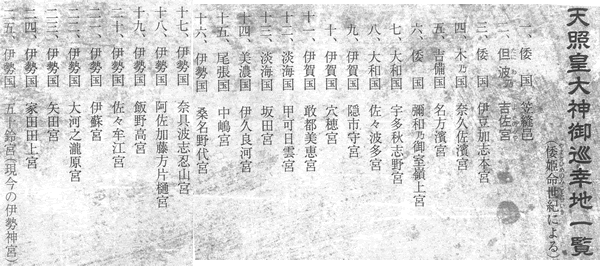 天照皇大神御巡幸地一覧
(倭姫命世紀による)
一、倭 国 笠縫邑
二、但波 国 吉佐宮
三、倭 国 伊豆加志本宮
四、木乃国 奈久佐濱宮
五、吉備国 名方濱宮
六、倭 国 彌和乃御室嶺上宮
七、大和国 宇多秋志野宮
八、大和国 佐々波多宮
九、伊賀国 隠市守宮
十、伊賀国 穴穂宮
十一、伊賀国 敢都美恵宮
十二、淡海国 甲可日雲宮
十三、淡海国 坂田宮
十四、美濃国 伊久良河宮
十五、尾張国 中嶋宮
十六、伊勢国 桑名野代宮
十七、伊勢国 奈具波志忍山宮
十八、伊勢国 阿佐加藤方片樋宮
十九、伊勢国 飯野高宮
二十、伊勢国 佐々牟江宮
二一、伊勢国 伊蘇宮
二二、伊勢国 大河之瀧原宮
二三、伊勢国 矢田宮
二四、伊勢国 家田田上宮
二五、伊勢国 五十鈴宮(現今の伊勢神宮)